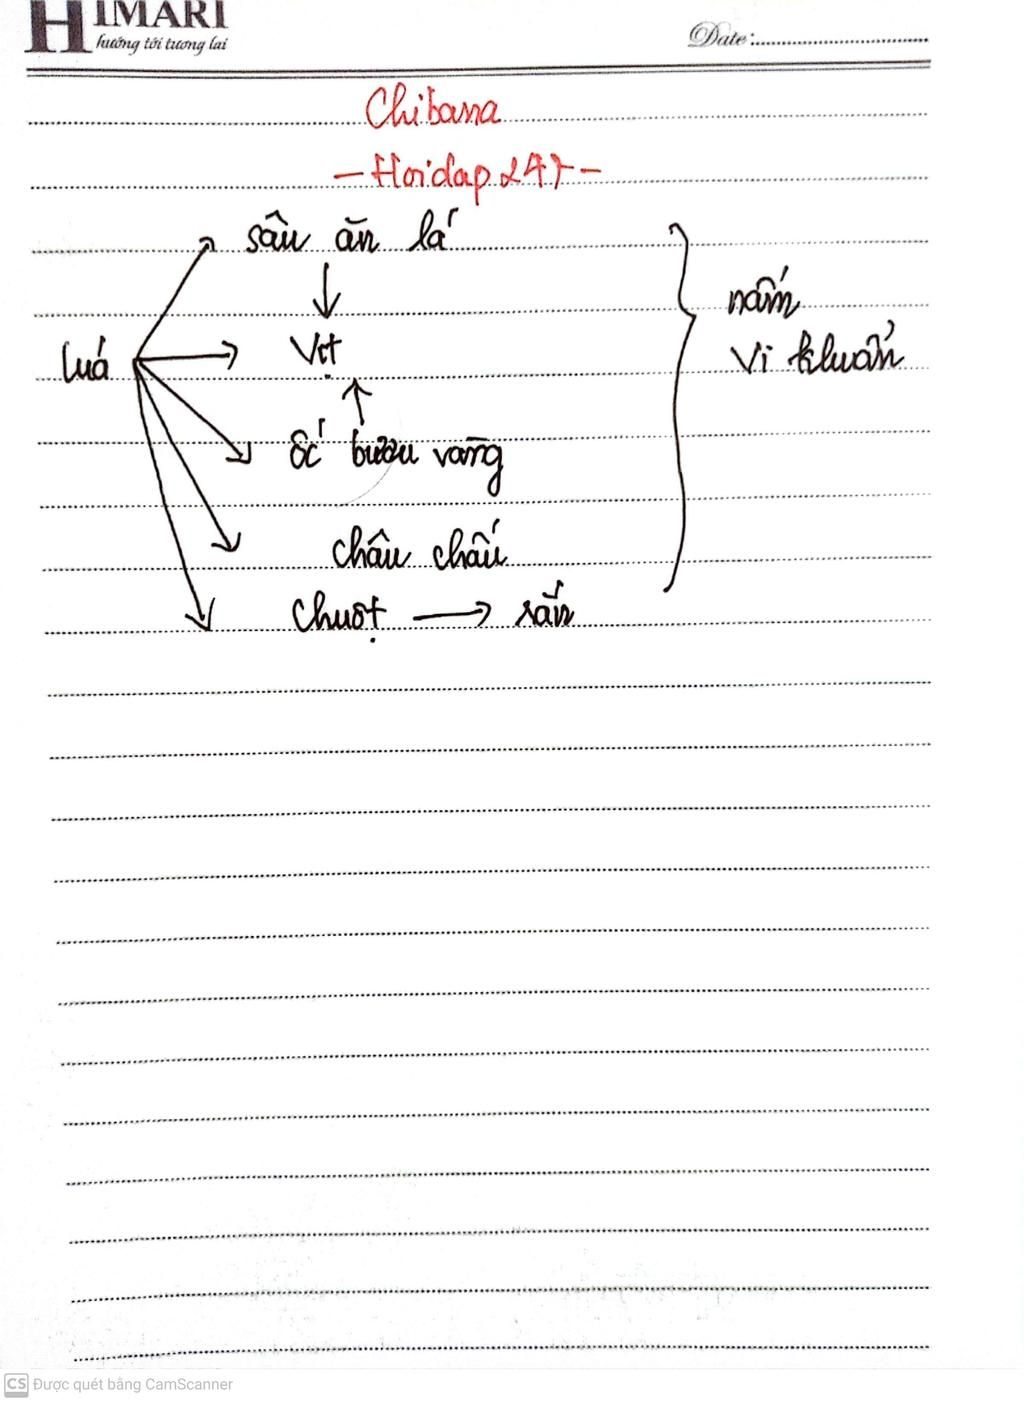 HIMARI
hướng tới tương lai
Date:
Chibana
- Hoidap 247 -
sâu ăn lá
Vịt
luá
ốc bươu vàng
châu chấu
chuột → rắn
nấm
Vi khuẩn
CS Được quét bằng CamScanner